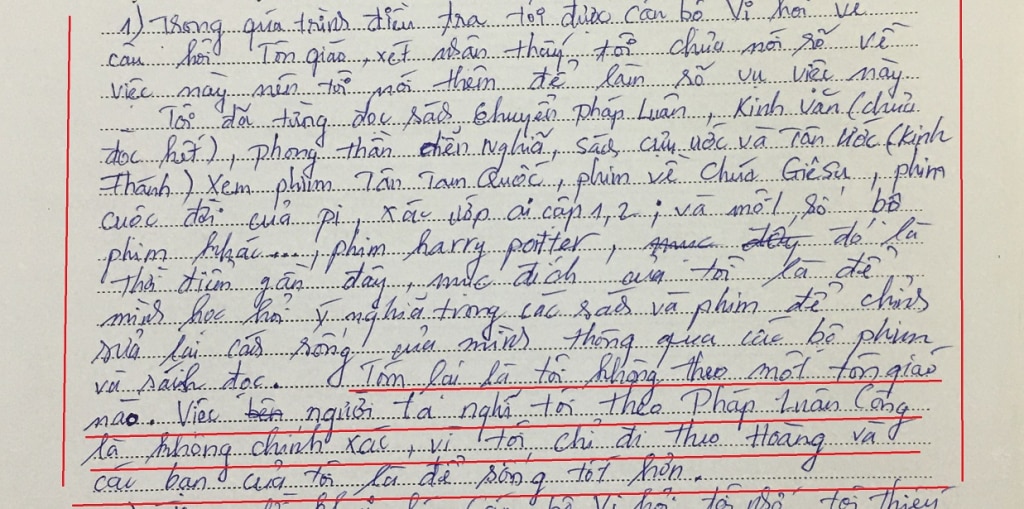 1) Trong quá trình điều tra tôi được cán bộ Vĩ hỏi về
câu hỏi Tôn giáo, xét nhân thấy tôi chưa nói rõ về
việc này nên tôi nói thêm để làm rõ vụ việc này
Tôi đã từng đọc sách Chuyển Pháp Luân, Kinh văn (chưa
đọc hết), phong thần diễn Nghĩa, Sách cựu ước và Tân ước (Kinh
Thánh) Xem phim Tân Tam Quốc, phim về Chúa Giêsu, phim
cuộc đời của pi, xác ướp ai cập 1, 2; và một số bộ
phim khác..., phim harry potter, mục đây đó là
thời điểm gần đây, mục đích của tôi là để
mình học hỏi ý nghĩa trong các sách và phim để chỉnh
sửa lại cách sống của mình thông qua các bộ phim
và sách đọc. Tóm lại là tôi không theo một tôn giáo
nào. Việc bên người ta nghĩ tôi theo Pháp Luân Công
là không chính xác, vì tôi chỉ đi theo Hoàng và
các bạn của tôi là để sống tốt hơn.